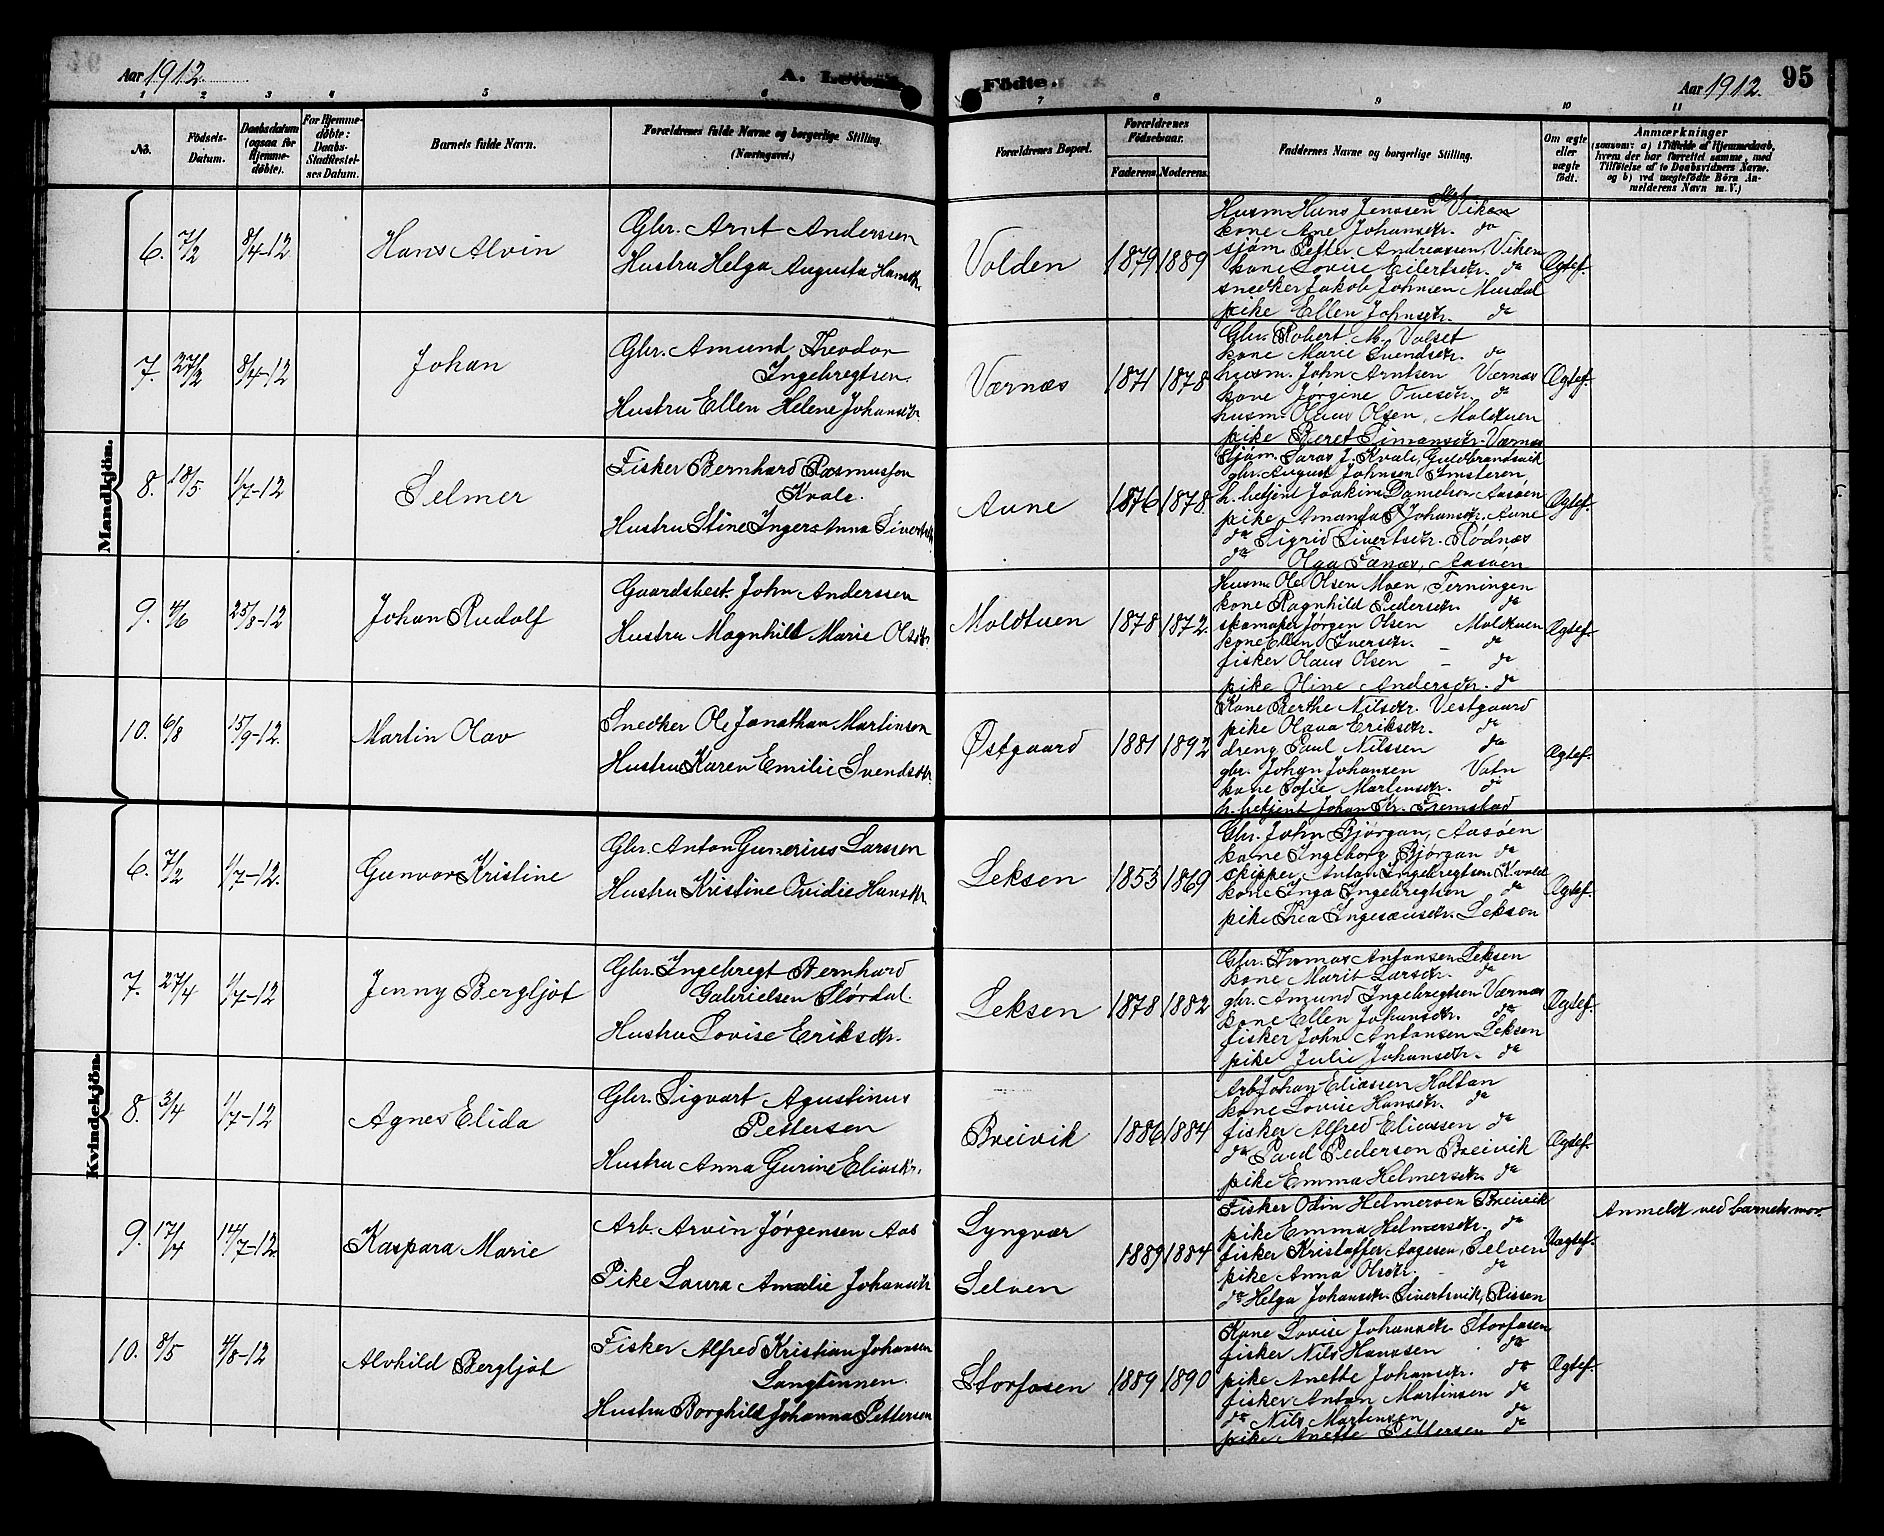 Aar 1912.
A. Levende
1 2 3 4 5 6
No.
Fødsels-
Datum.
Daabsdatum
(ogsaa for
Hjemme-
døbte).
For Hjemme-
døbte:
Daabs-
Stadfæstel-
ses Datum.
Barnets fulde Navn.
Forældrenes fulde Navne og borgerlige Stilling.
(Næringsvei.)
Mandkjøn.
6. 7/2 8/4-12 Hans Alvin Gbr. Arnt Anderssen
Hustru Helga Augusta Hansdtr.
7. 27/2 8/4-12 Johan Gbr. Amund Theodor
Ingebregtsen.
Hustru Ellen Helene Johansdtr
8. 18/5 1/7-12 Selmer Fisker Bernhard Rasmussen
Kvale.
Hustru Stine Inger Anna Sivertsdtr.
9. 4/6 25/8-12 Johan Rudolf Gaardsbest. John Anderssen
Hustru Magnhild Marie Olsdtr
10. 6/8 15/9-12. Martin Olav Snedker Ole Jonathan Martinsen
Hustru Karen Emilie Svendsdtr.
Kvindekjøn.
6. 7/2 1/7-12. Gunvor Kristine Gbr. Anton Gunerius Larsen
Hustru Kristine Ovidie Hansdtr
7. 27/4 1/7-12 Jenny Bergljot Gbr. Ingebregt Bernhard
Gabrielsen Størdal.
Hustru Lovise Eriksdtr.
8. 3/4 1/7-12 Agnes Elida Gbr. Sigvart Agustinus
Pettersen
Hustru Anna Gurine Eliasdtr.
9. 17/4 14/7-12 Kaspara Marie Arb. Arvin Jørgensen Aas
Pike Laura Amalie Johansdtr
10. 8/5 4/8-12 Alvhild Bergljot Fisker Alfred Kristian Johansen
Langtinnen.
Hustru Borghild Johanna Pettersen
Fødte.
Aar 1912. 95
7 8 9 10 11
Forældrenes Bopæl.
Forældrenes
Fødselsaar.
Faderens. Moderens.
Faddernes Navne og borgerlige Stilling.
Om ægte
eller
uægte
født.
Anmærkninger
(saasom: a) i Tilfælde af Hjemmedaab,
hvem der har forrettet samme, med
Tilføielse af to Daabsvidners Navne.
og b) ved uægtefødte Børn An-
melderens Navn m. V.)
Volden 1879 1889 Ægtef.
Husm. Hans Jenssen Viken
kone Ane Johansdtr. do
sjøm. Petter Andreassen Viken
kone Lovise Eilertsdtr. do
snedker Jakob Johnsen Musdal
pike Ellen Johnsdtr. do
Værnæs 1871 1878 Ægtef.
Gbr. Robert M. Valset
kone Marie Svendsdtr. do
husm. John Arntsen Værnæs
kone Jørgine Ovesdtr. do
husm. Olaus Olsen, Moldtuen
pike Beret Simonsdtr. Værnæs
Aune 1876 1878 Ægtef.
Sjøm. Saras J. Kvale, Guldbrandsvik
gbr. August Johnsen Smisteren
h.betjent Joakim Danielsen Aasøen
pike Amanda Johansdtr. Aune
do Sigrid Sivertsdtr. Rødnæs
do Olga Fanæs, Aasøen
Moldtuen 1878 1872. Ægtef.
Husm. Ole Olsen Moen Terningen
kone Ragnhild Pedersdtr. do
skomaker Jørgen Olsen Moldtuen
kone Ellen Iversdtr. - do
fisker Olaus Olsen - do
pike Oline Andersdtr. do
Østgaard 1881 1892 Ægtef.
Kone Berthe Nilsdtr. Vestgaard
pike Olava Eriksdtr. do
dreng Paul Nilssen do
gbr. Johan Johansen Vatn
kone Sofie Martensdtr. do
h.betjent Johan Kr. Fremstad
Leksen 1853 1869 Ægtef.
Gbr. John Bjørgan, Aasøen
kone Ingeborg Bjørgan do
skipper Anton Ingebregtsen Kvald
kone Inga Ingebregtsen do
pike Thea Ingesæusdtr. Leksen
Leksen 1878 1882 Ægtef.
Gbr. Thomas Antonsen Leksen
kone Marit Larsdtr. do
gbr. Amund Ingebregtsen Værnæs
kone Ellen Johansdtr. do
fisker John Antonsen Leksen
pike Julie Johansdtr. do
Breivik 1886 1884 Ægtef.
Arb. Johan Eliassen Holtan
kone Lovise Hansdtr. do
fisker Alfred Eliassen do
do Paul Pedersen Breivik
pike Emma Helmersdtr. do
Lyngvær
Selven 1889 1884 Uægtef.
Fisker Odin Helmersen Breivik
pike Emma Helmersdtr. do
fisker Kristoffer Aagesen, Selven
pike Anna Olsdtr. - do
do Helga Johansdtr. Sivertsvik, Rissen
Anmeldt ved barnets mor.
Storfosen 1889 1890 Ægtef.
Kone Lovise Johansdtr. Storfosen
fisker Nils Hanssen do
pike Anette Johansdtr. do
fisker Anton Martinsen do
do Nils Martensen do
pike Anette Pettersen do